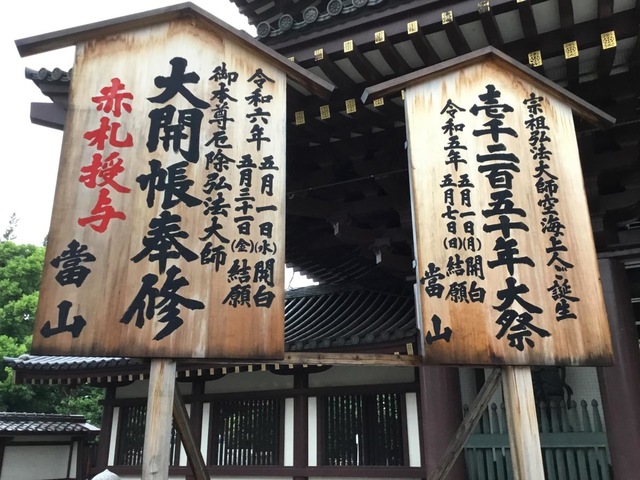 令和六年
五月一日(水)開白
五月三十一日(金)結願
御本尊厄除弘法大師
大開帳奉修
赤札授与
當山
宗祖弘法大師空海上人ご誕生
壱千二百五十年大祭
令和五年
五月一日(月)開白
五月七日(日)結願
當山